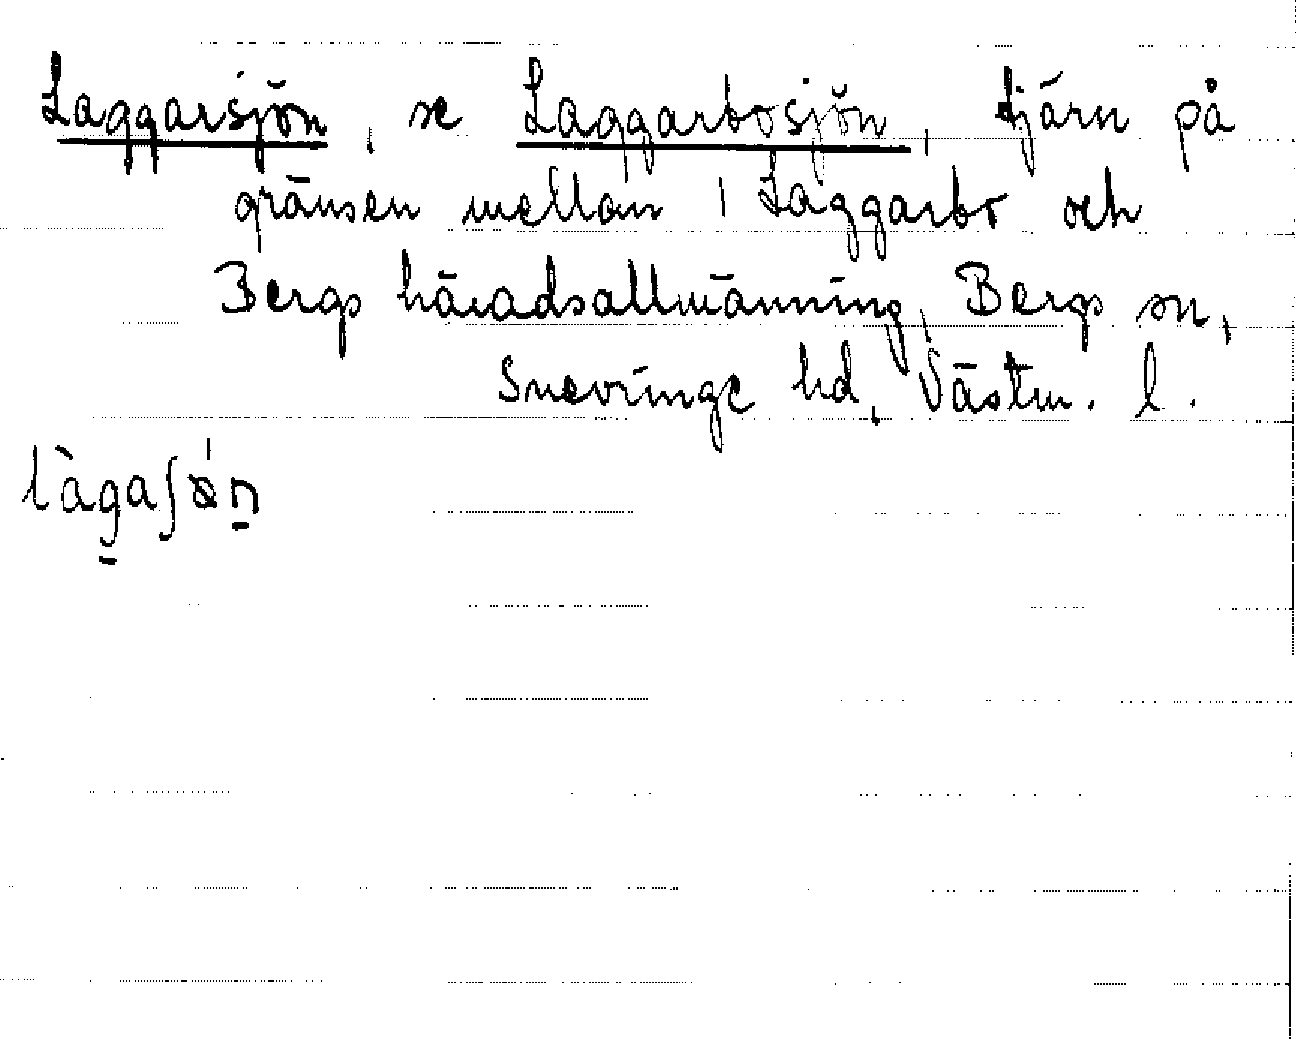 Laggarsjön, se Laggarbosjön, tjärn på
gränsen mellan Laggarbo och
Bergs häradsallmänning, Bergs sn,
Snevringe hd, Västm. l.